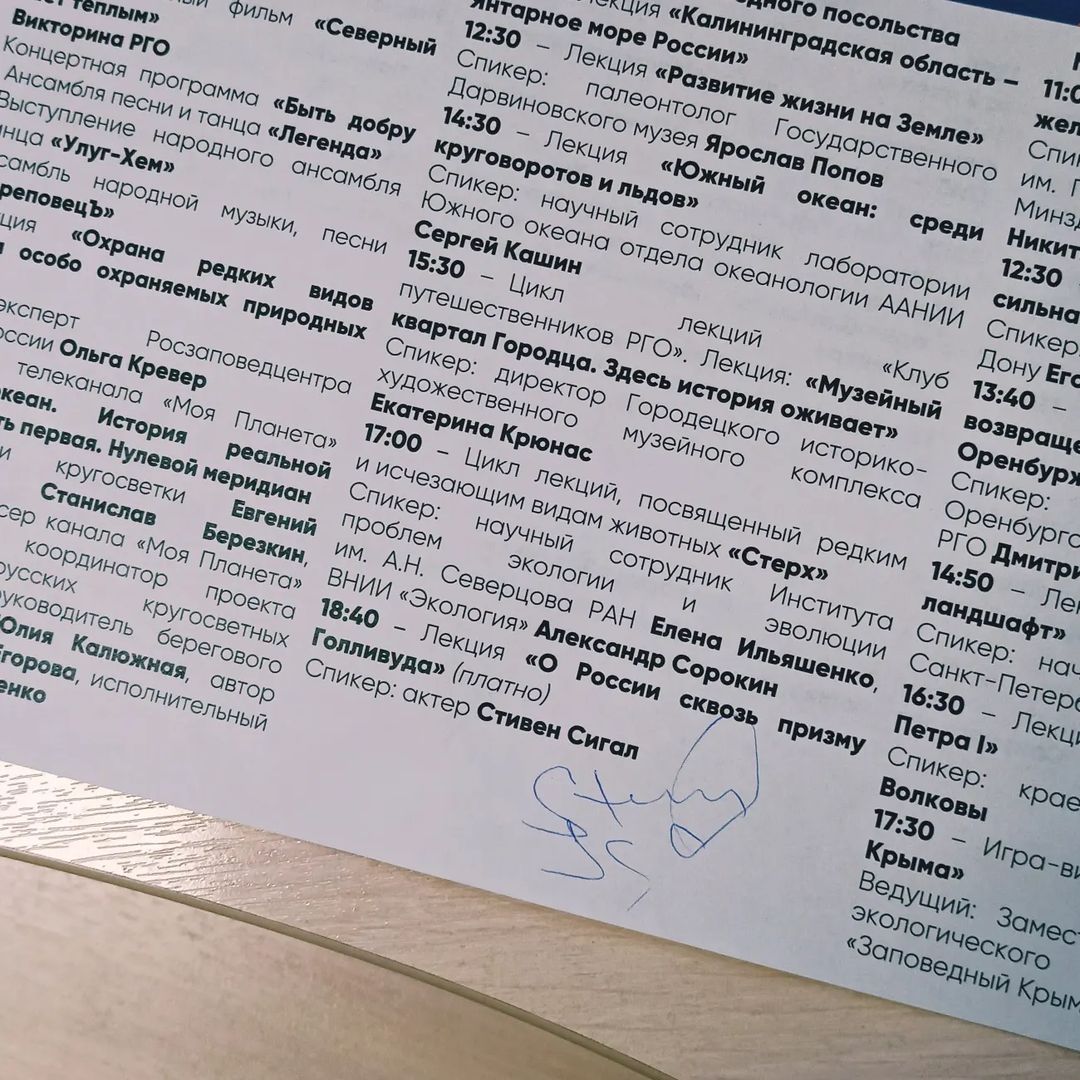 теплым»
Викторина РГО
Концертная программа «Быть добру
Ансамбля песни и танца «Легенда»
Выступление народного ансамбля
«Улуг-Хем»
народной музыки, песни
«Охрана редких видов
особо охраняемых природных
эксперт Росзаповедцентра
Ольга Кревер
телеканала «Моя Планета»
История реальной
первая. Нулевой меридиан
кругосветки Евгений
Станислав Березкин,
канала «Моя Планета»
координатор проекта
русских кругосветных
руководитель берегового
Юлия Калюжная, автор
Егорова, исполнительный
фильм «Северный
посольства
«Калининградская область –
Янтарное море России»
12:30 – Лекция «Развитие жизни на Земле»
Спикер: палеонтолог Государственного
Дарвиновского музея Ярослав Попов
14:30 – Лекция «Южный океан: среди
круговоротов и льдов»
Спикер: научный сотрудник лаборатории
Южного океана отдела океанологии ААНИИ
Сергей Кашин
15:30 – Цикл лекций «Клуб
путешественников РГО». Лекция: «Музейный
квартал Городца. Здесь история оживает»
Спикер: директор Городецкого историко-
художественного музейного комплекса
Екатерина Крюнас
17:00 – Цикл лекций, посвященный редким
и исчезающим видам животных «Стерх»
Спикер: научный сотрудник Института
проблем экологии и эволюции
им. А.Н. Северцова РАН Елена Ильяшенко,
ВНИИ «Экология» Александр Сорокин
18:40 – Лекция «О России сквозь призму
Голливуда» (платно)
Спикер: актер Стивен Сигал
им.
12:30
Спикер:
Дону
13:40 –
Спикер:
РГО
14:50 –
ландшафт»
Спикер:
16:30 –
Петра I»
Спикер:
Волковы
17:30 –
Крыма»
Ведущий:
экологического
«Заповедный